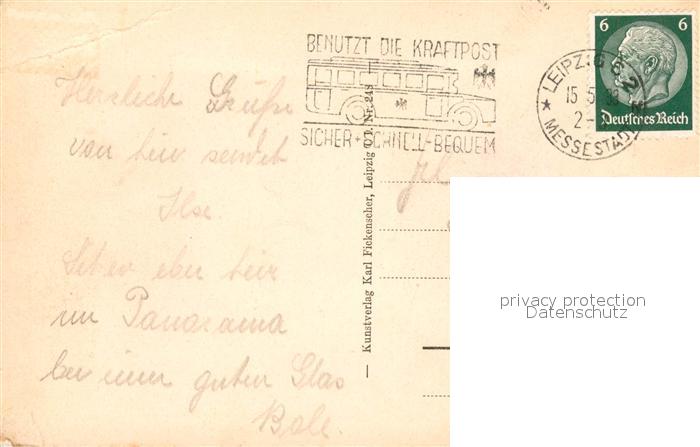 BENUTZT DIE KRAFTPOST
SICHER + SCHNELL - BEQUEM
LEIPZIG
15.5.
MESSESTADT
6 6
Deutsches Reich
Herzliche Grüße
von hier sendet
Ilse.
hier
im Panorama
bei einer guten Glas
Kunstverlag Karl Fickenscher, Leipzig O 1. Nr. 248
privacy protection
Datenschutz